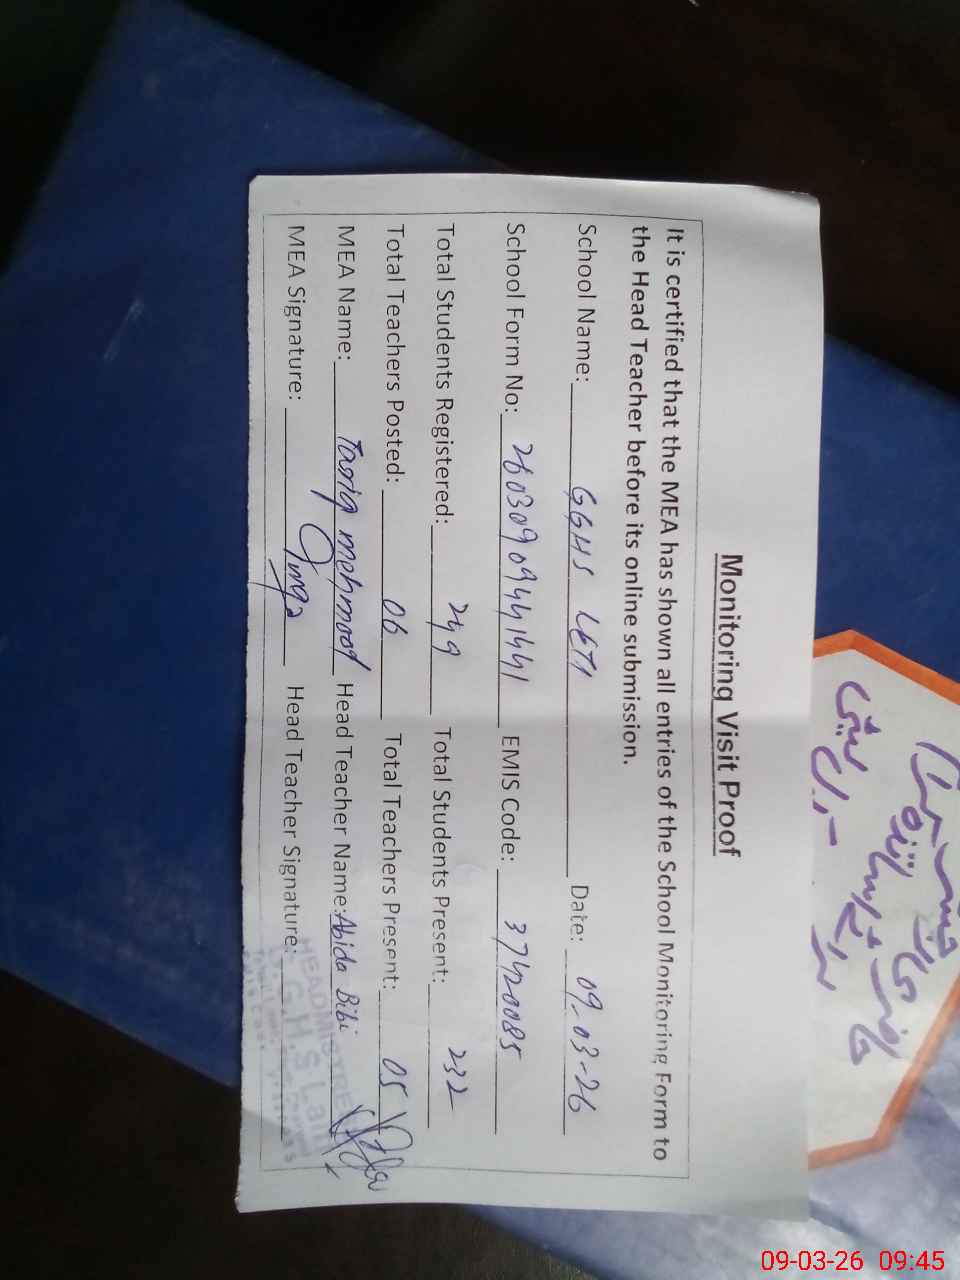 Monitoring Visit Proof
It is certified that the MEA has shown all entries of the School Monitoring Form to
the Head Teacher before its online submission.
School Name: GGHS LETI Date: 09-03-26
School Form No: EMIS Code: 37420085
Total Students Registered: 249 Total Students Present: 232
Total Teachers Posted: 06 Total Teachers Present: 05
MEA Name: Tariq mehmood Head Teacher Name: Abida Bibi
MEA Signature: Head Teacher Signature:
HEADMISTRESS
G.H.S
09-03-26 09:45